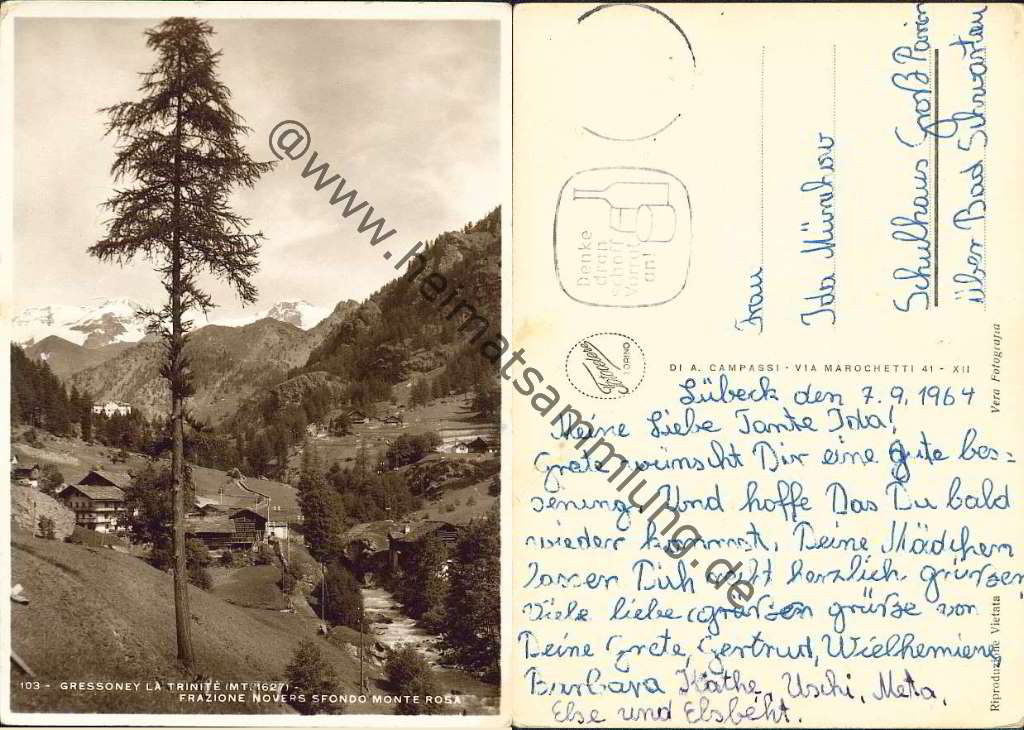 103 - GRESSONEY LA TRINITÉ (MT. 1627) -
FRAZIONE NOVERS SFONDO MONTE ROSA
@www.heimatsammlung.de
Denke
dran
schaff
Vorrat
an!
Frau
Ida Münstow
Schulhaus Groß Parin
über Bad Schwartau
TORINO
DI A. CAMPASSI - VIA MAROCHETTI 41 - XII
Vera Fotografia
Riproduzione Vietata
Lübeck den 7.9.1964
Meine Liebe Tante Ida!
Grete wünscht Dir eine gute bes=
serung. Und hoffe Das Du bald
wieder kommst. Deine Mädchen
lassen Dich recht herzlich grüßen
Viele liebe grüße von
Deine Grete, Gertrud, Wielhemiene
Barbara Käthe, Uschi, Meta,
Else und Elsbeht.